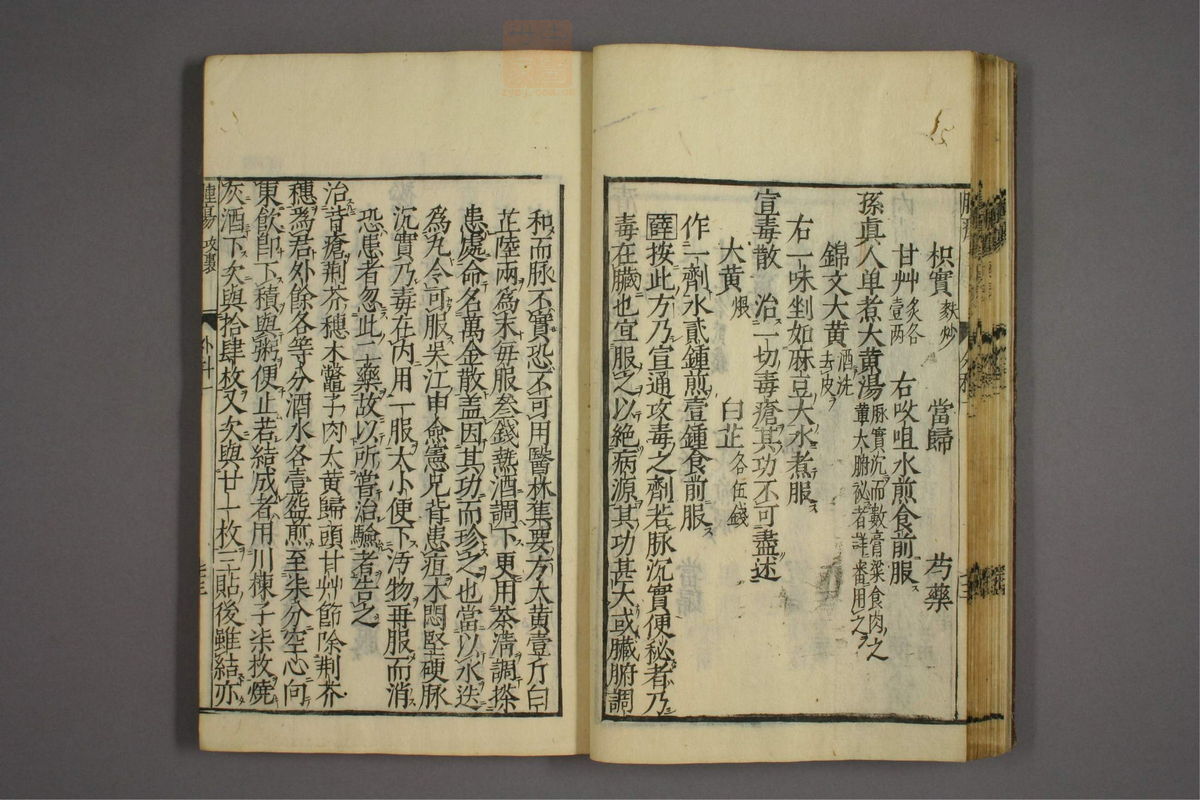 枳實麩炒　當歸　芍藥
甘艸炙各壹兩　右㕮咀水煎食前服
孫真人单煮大黄湯脉實沉而數膏粱食肉之軰大腑祕者詳審用之
錦文大黄酒洗去皮
右一味剉如麻豆大水煮服
宣毒散　治一切毒瘡其功不可盡述
大黄煨　白芷各伍錢
作一劑水貳鍾煎壹鍾食前服
薛按此方乃宣通攻毒之劑若脉沉實便秘者乃
毒在臓也宜服之以絶病源其功甚大或臓腑調
和而脉不實恐不可用醫林集要方大黄壹斤白
芷陸兩爲末毎服叁錢𤍠酒調下更用茶清調搽
患處命名萬金散盖因其功而珍之也當以水迭
爲丸令可服吴江申僉憲兄背患疽不悶堅硬脉
沉實乃毒在内用一服大小便下汚物再服而消
恐患者忽此二藥故以所嘗治驗者告之
治背瘡荆芥穗木鼈子肉大黄歸頭甘艸節除荆芥
穗爲君外餘各等分酒水各壹盌煎至柒分空心向
東飲卽下積與粥便止若結成者用川楝子柒枚燒
灰酒下欠與拾肆枚又欠與廿一枚三貼後雖結亦
外科